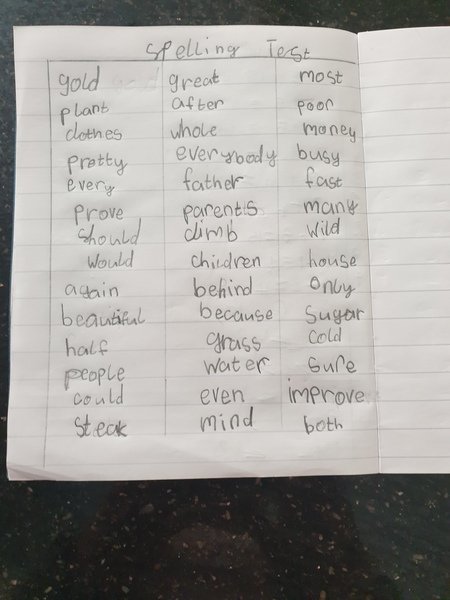 Spelling Test
gold great most
plant after poor
clothes whole money
pretty everybody busy
every father fast
Prove parents many
Should climb wild
Would children house
again behind Only
beautiful because Sugar
half grass Cold
people water Sure
could even improve
Steak mind both